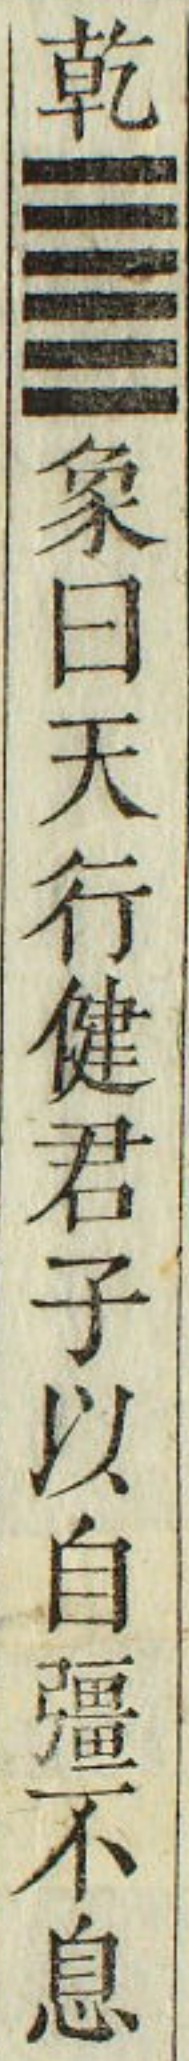 乾䷀象曰天行健君子以自彊不息